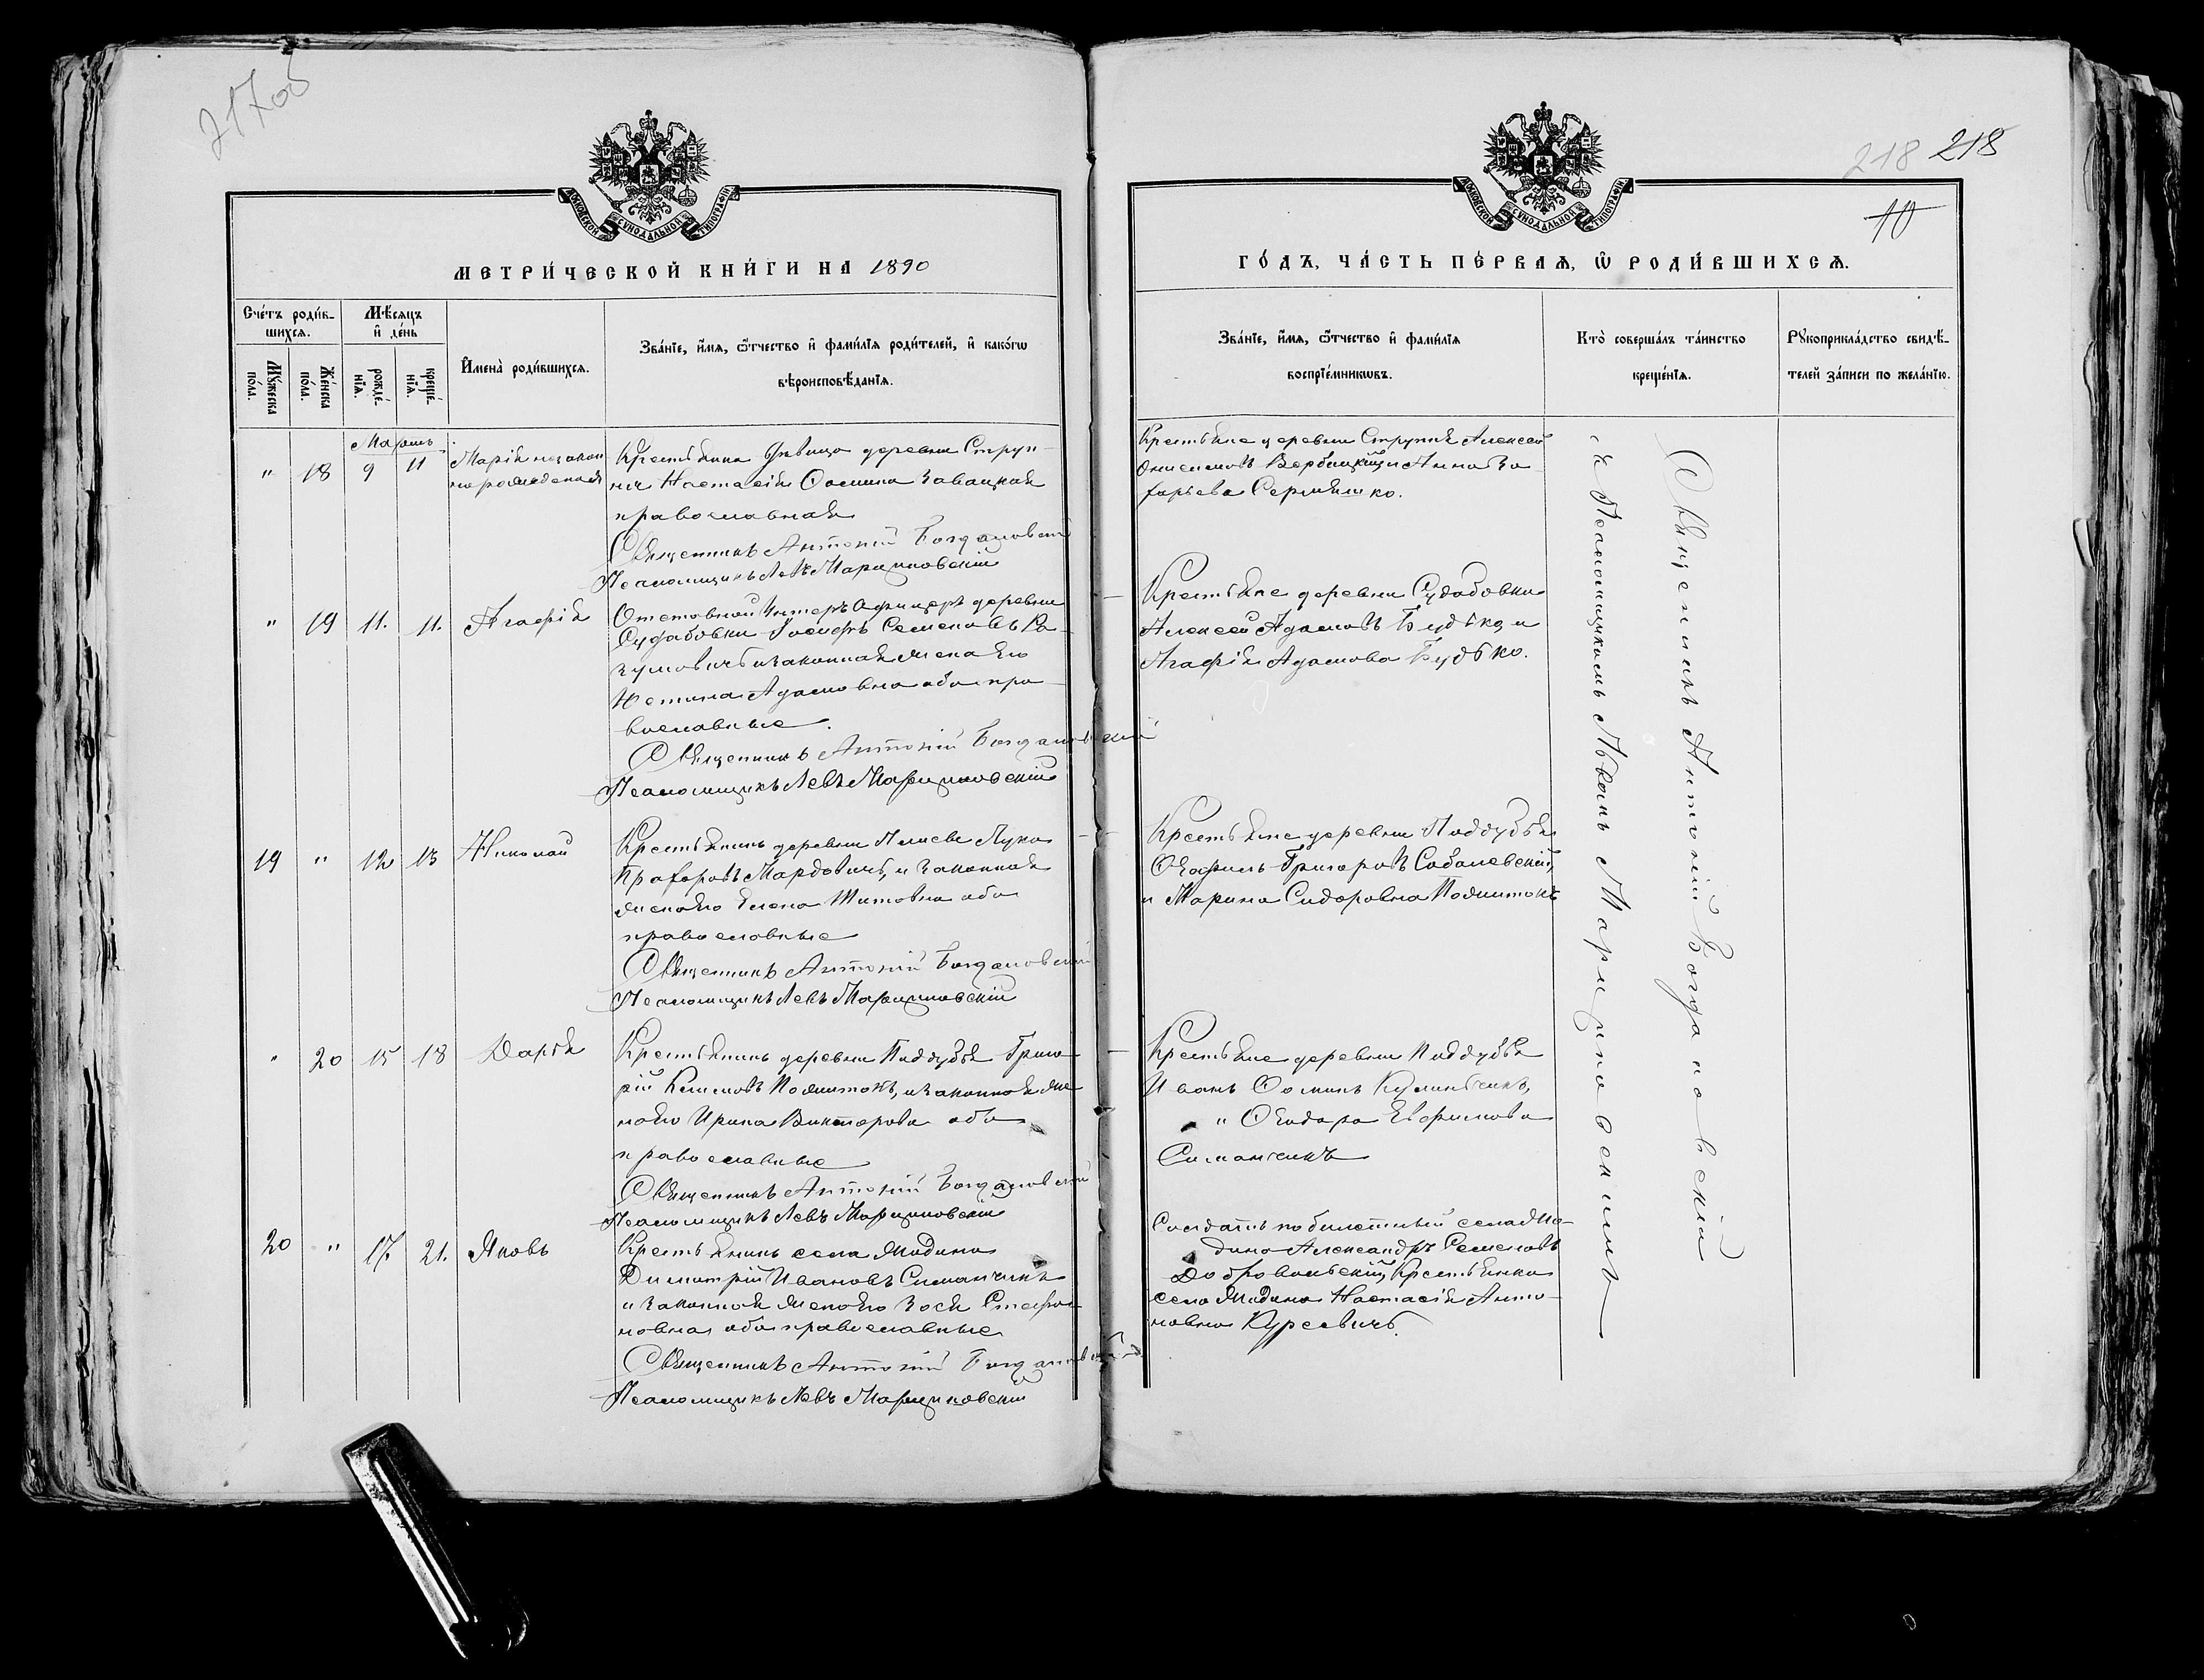 217об
МОСКОВСКОЙ СУНОДАЛЬНОЙ ТИПОГРАФІИ
МЕТРИ́ЧЕСКОЙ КНИ́ГИ НА 1890
Сче́тъ роди́в-
шихсѧ.
Мѣ́сѧцъ
и҆ де́нь
Мꙋ́жеска
по́ла.
Же́нска
по́ла.
рожде́-
нїѧ.
креще́-
нїѧ.
И҆мена̀ роди́вшихсѧ.
Зва́нїе, и҆́мѧ, ѻ҆́тчество и҆ фами́лїѧ роди́телей, и҆ како́гѡ
вѣроисповѣ́данїѧ.
Мартъ
" 18 9 11
Марія незакон
норожденная
Крестьянка девица деревни Струп-
ни Настасія Ѳомина Завацкая
православная
Священникъ Антоній Богдановскій
Псаломщикъ Левъ Марциновскій
" 19 11. 11. Агафія
Отставной Унтеръ Офицеръ деревни
Судабовки Іосифъ Семеновъ Ра-
зумовичъ и законная жена его
Устина Адамовна оба пра-
вославные.
Священникъ Антоній Богдановскій
Псаломщикъ Левъ Марциновскій
19 " 12 13 Николай
Крестьянинъ деревни Лука
Прохоровъ Мардовичъ, и законная
жена его Елена Титовна оба
православные
Священникъ Антоній Богдановскій
Псаломщикъ Левъ Марциновскій
" 20 15 18 Дарія
Крестьянинъ деревни Поддубья Григо
рій Климовъ и законная же
на его Ирина Викторова оба
православные
Священникъ Антоній Богдановскій
Псаломщикъ Левъ Марциновскій
20 " 17. 21. Яковъ
Крестьянинъ села Жадина
Димитрій Ивановъ Симанчикъ
и законная жена его Зося Стефа
новна оба православные
Священникъ Антоній Богдановскій
Псаломщикъ Левъ Марциновскій
218 218
10
МОСКОВСКОЙ СУНОДАЛЬНОЙ ТИПОГРАФІИ
ГО́ДЪ, ЧА́СТЬ ПЕ́РВАѦ, Ѡ҆ РОДИ́ВШИХСѦ.
Зва́нїе, и҆́мѧ, ѻ҆́тчество и҆ фами́лїѧ
воспрїе́мникѡвъ.
Кто̀ соверша́лъ та́инство
креще́нїѧ.
Рꙋкоприкла́дство свидѣ́-
телей за́писи по жела́нїю.
Крестьяне деревни Струпня Алексей
Онисимовъ Вербицкій и Анна За
харьева Сермяшко.
Крестьяне деревни Судабовки
Алексей Адамовъ Будько, и
Агафія Адамова Будько.
Крестьяне деревни Поддубья
Григоровъ Соболевскій,
и Марина Сидоровна
Крестьяне деревни Поддубья
Иванъ Ѳоминъ
" Ѳеодора Евфимова
Симанчикъ
Солдатъ по билетный села Жа-
дина Александръ Семеновъ
Добровольскій, Крестьянка
села Жадина Настасія Анто-
новна Курсевичъ.
Священникъ Антоній Богдановскій
съ Псаломщикомъ Львомъ Марциновскимъ